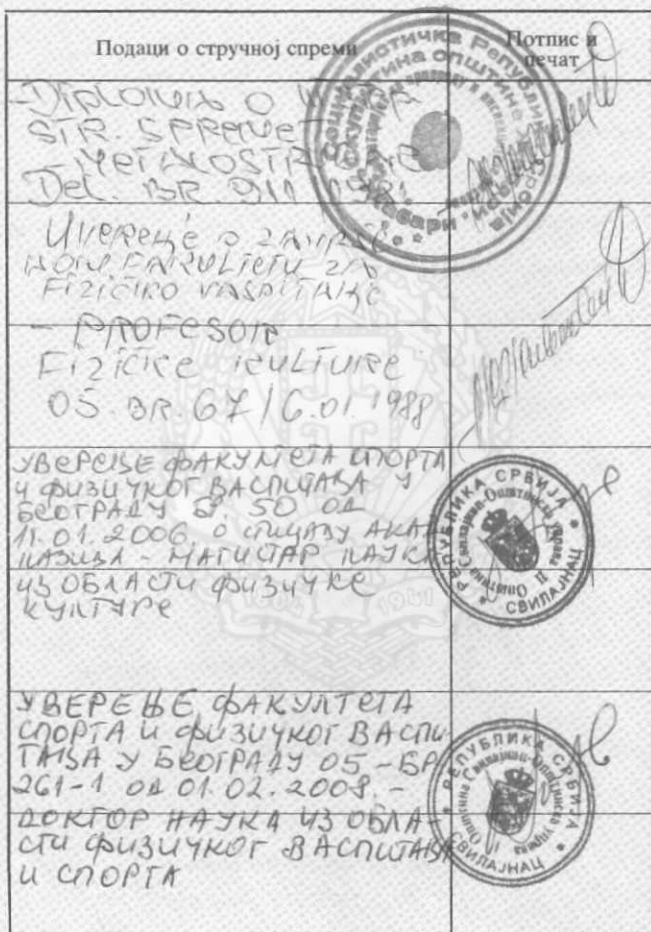 Подаци о стручној спреми
Потпис и печат
-Diploma o
STR. SPREME
Del. BR. 911
Uverenje o završ
nom fakultetu za
Fizičko vaspitanje
- PROFESOR
Fizičke kulture
05. BR. 67/6.01.1988
УВЕРЕЊЕ ФАКУЛТЕТА СПОРТА
И ФИЗИЧКОГ ВАСПИТАЊА У
БЕОГРАДУ БР 50 ОД
11.01.2006. О СТИЦАЊУ АКАД
НАЗИВА - МАГИСТАР НАУКА
ИЗ ОБЛАСТИ ФИЗИЧКЕ
КУЛТУРЕ
РЕПУБЛИКА СРБИЈА
Општина Свилајнац-Општинска управа
II
СВИЛАЈНАЦ
1804 1941
УВЕРЕЊЕ ФАКУЛТЕТА
СПОРТА И ФИЗИЧКОГ ВАСПИ
ТАЊА У БЕОГРАДУ 05-БР
261-1 ОД 01.02.2008.-
ДОКТОР НАУКА ИЗ ОБЛА-
СТИ ФИЗИЧКОГ ВАСПИТАЊА
И СПОРТА
РЕПУБЛИКА СРБИЈА
Општина Свилајнац-Општинска управа
СВИЛАЈНАЦ